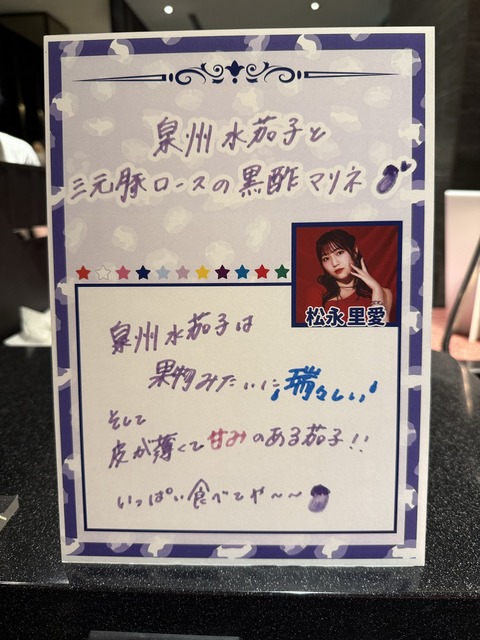 泉州水茄子と
三元豚ロースの黒酢マリネ
松永里愛
泉州水茄子は
果物みたいに瑞々しい
そして
皮が薄くて甘みのある茄子!!
いっぱい食べてや〜〜